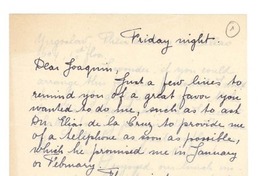 Friday night.
Dear Joaquin:
Just a few lines to
remind you of a great favor you
wanted to do me, such as to ask
Dr. Elías de la Cruz to provide me
of a telephone as soon as possible,
which he promised me in January
or February.